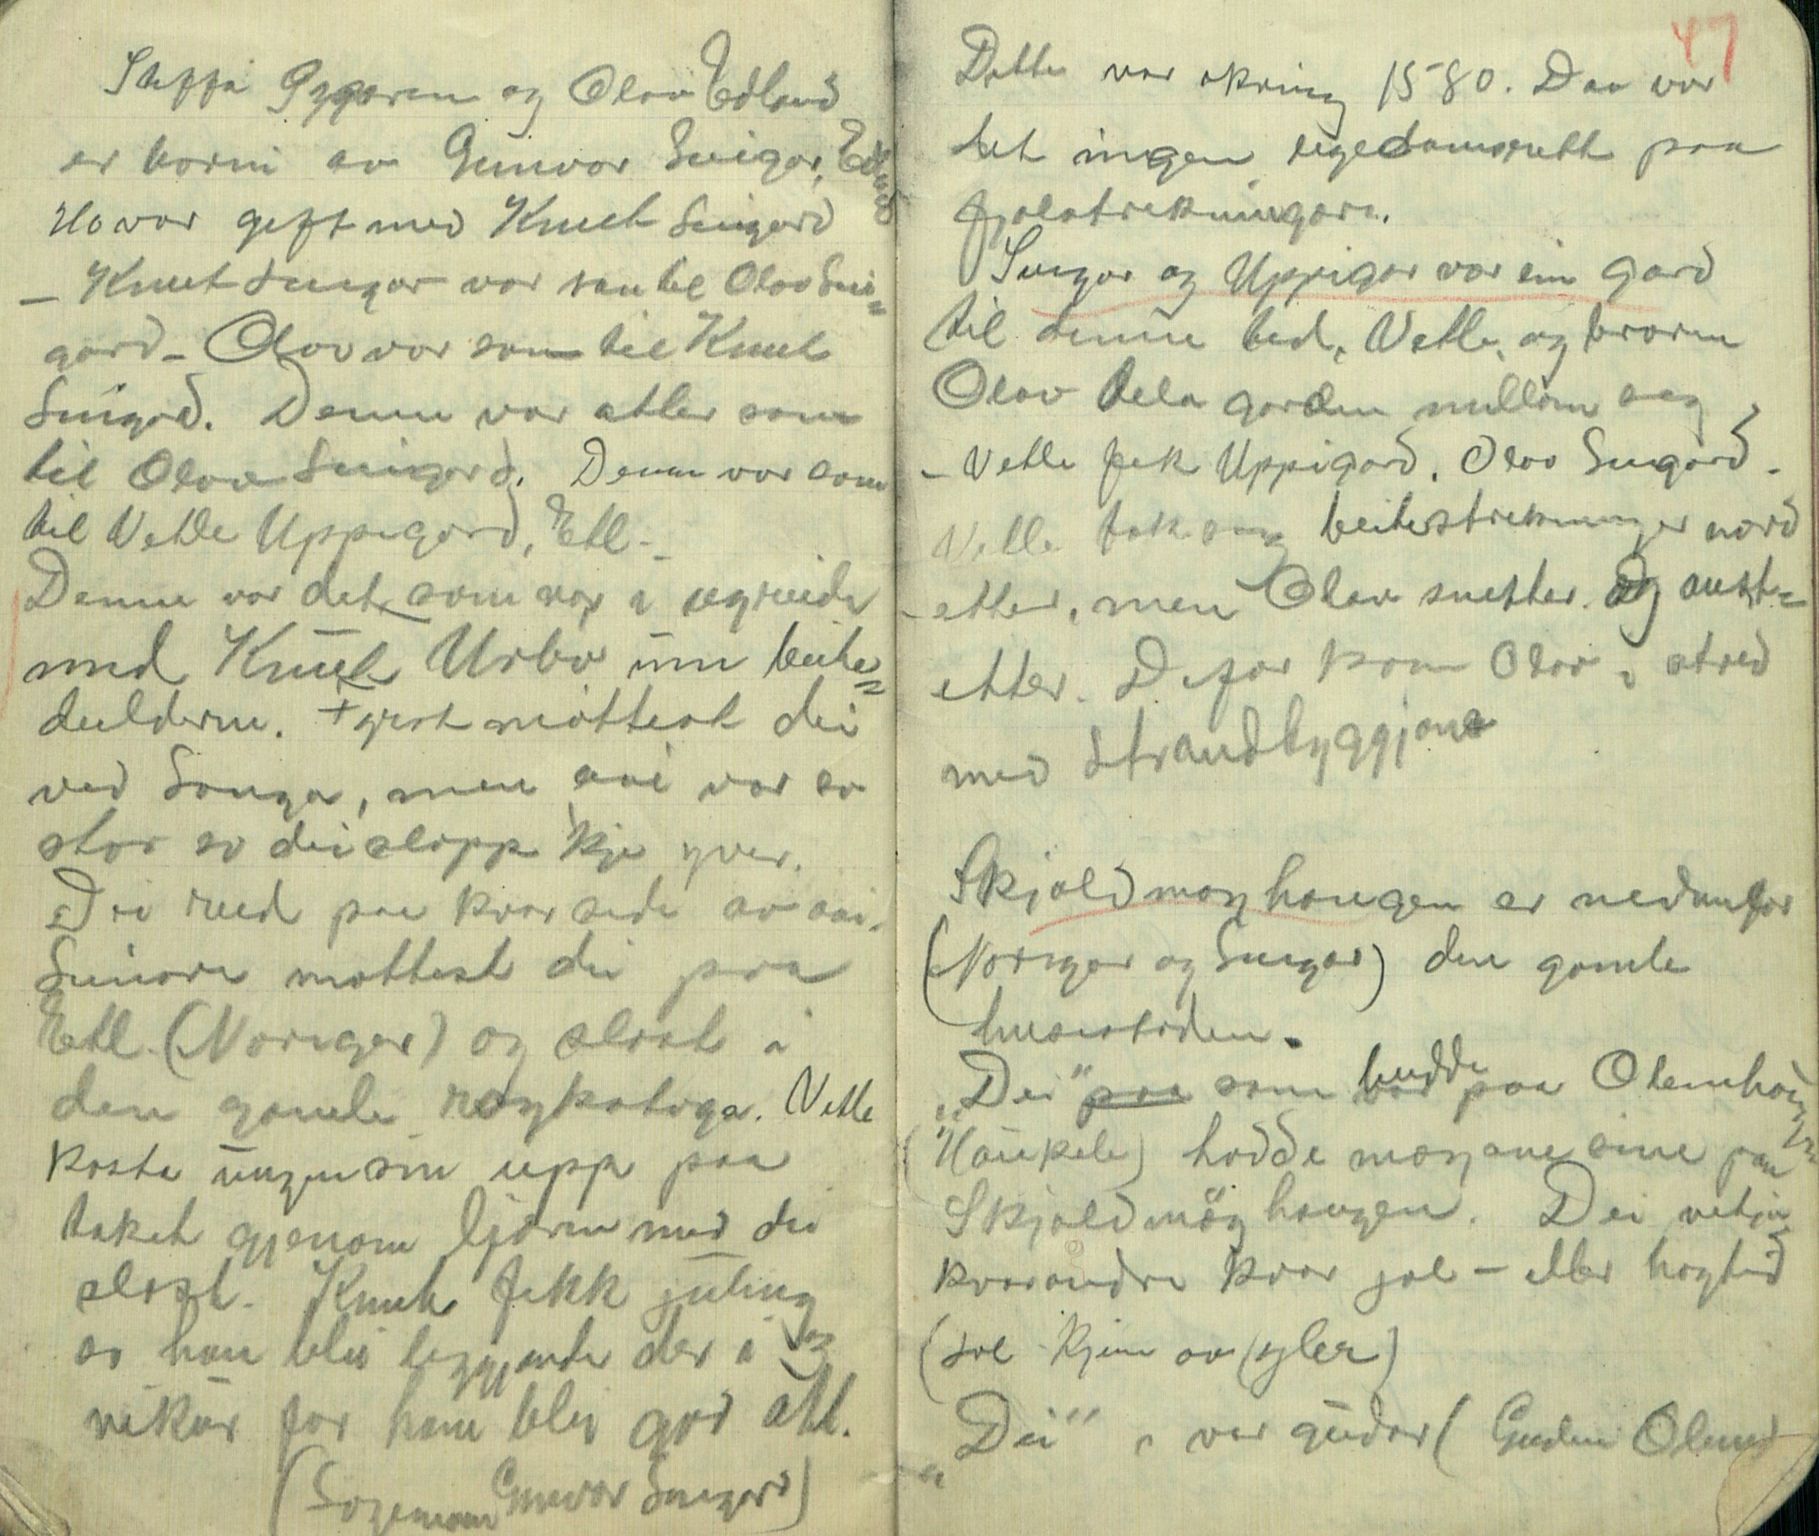 Steffá Gygaren og Olav Edland
er born av Gunvor Suigar, Edland
Ho var gift med Knut Suigard
– Knut Suigar var son til Olav Sui=
gard – Olav var son til Knut
Suigard. Denne var atter son
til Olav Suigard. Denne var son
til Vetle Uppigard, Etl.
Denne var det som var i ugreide
med Knut Urbø um beite=
deilderne. + Fyrst møttest dei
ved Songa, men aai var so
stor so dei slapp kje yver.
Dei reid paa kvar side av aai.
Sinare møttest dei paa
Etl. (Norigar) og slost i
den gamle røykstoga. Vetle
kasta ungen sin upp paa
taket gjenom ljoren med dei
slost. Knut fekk juling
so han blei leggjande der i 3
vikur for han blei god att.
(Sogemann Gunvor Suigard)
47
Dette var okring 1580. Daa var
det ingen eigedomsrett paa
fjelstrekningar.
Suigar og Uppigar var ein gard
til denne tid. Vetle og broren
Olav dela garden millom seg
– Vetle fek Uppigard. Olav Suigard.
Vetle tok seg beitestrekninger nord
etter, men Olav suetter og aust=
etter. Difor kom Olav i strid
med Strandbyggjane
Skjoldmøyhaugen er nedanfor
(Norigar og Suigar) den gamle
husestoden.
"Dei" som budde paa Olemhaugen
(Haukeli) hadde møyane sine paa
Skjoldmøyhaugen. Dei vitja
kvarandre kvar jol – eller høgtid
(Jol kjem av (yler)
"Dei" var gudar (Guden Olem